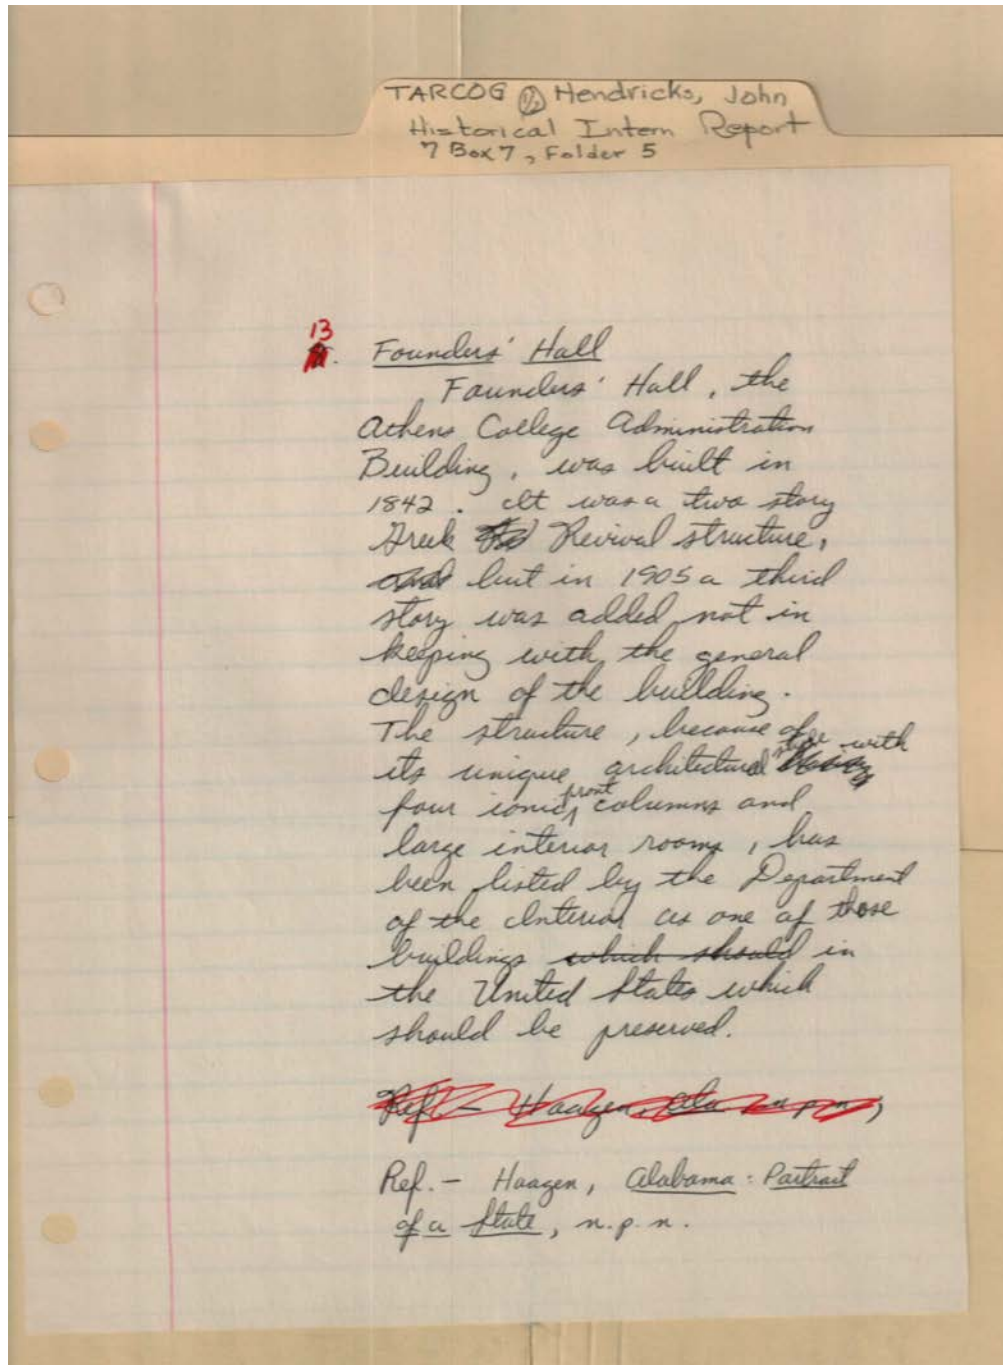 TARCOG Hendricks, John
Historical Intern Report
7 Box 7, Folder 5
13
Founders' Hall
Founders' Hall, the
Athens College Administration
Building, was built in
1842. It was a two story
Greek Revival structure,
and but in 1905 a third
story was added not in
keeping with the general
design of the building.
The structure, because of
its unique architectural style with
four ionic front columns and
large interior rooms, has
been listed by the Department
of the Interior as one of those
buildings which should in
the United States which
should be preserved.
Ref. - Haagen, Ala n.p.n.,
Ref. - Haagen, Alabama: Portrait
of a State, n.p.n.